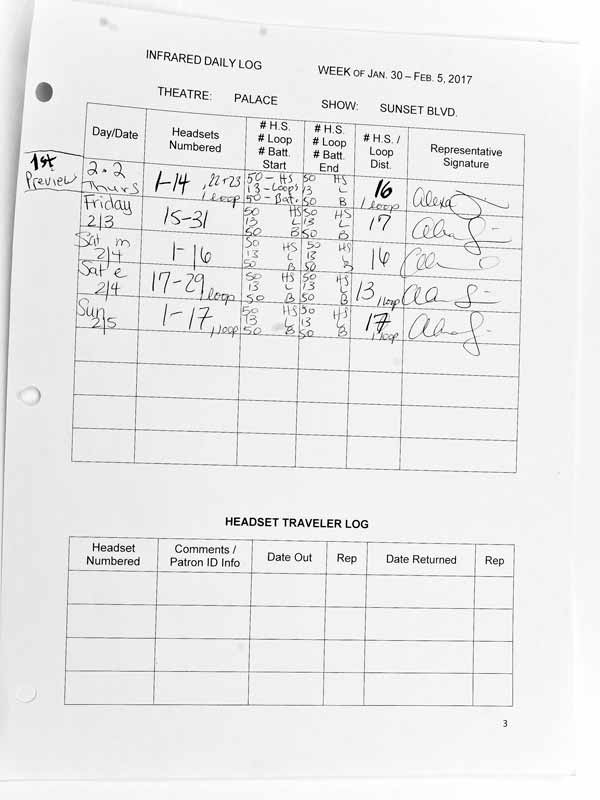 INFRARED DAILY LOG
WEEK OF JAN. 30 – FEB. 5, 2017
THEATRE: PALACE SHOW: SUNSET BLVD.
Day/Date Headsets Numbered # H.S. # Loop # Batt. Start # H.S. # Loop # Batt. End # H.S. / Loop Dist. Representative Signature
1st Preview
2.2 Thurs 1-14, 22+23 1 loop 50 - HS 13 - Loops 50 - Bat. 50 HS 13 L 50 B 16 1 loop
Friday 2/3 15-31 50 HS 13 L 50 B 50 HS 13 L 50 B 17
Sat m 2/4 1-16 50 HS 13 L 50 B 50 HS 13 L 50 B 16
Sat e 2/4 17-29, 1 loop 50 HS 13 L 50 B 50 HS 13 L 50 B 13, 1 loop
Sun 2/5 1-17, 1 loop 50 HS 13 L 50 B 50 HS 13 L 50 B 17 1 loop
HEADSET TRAVELER LOG
Headset Numbered Comments / Patron ID Info Date Out Rep Date Returned Rep
3